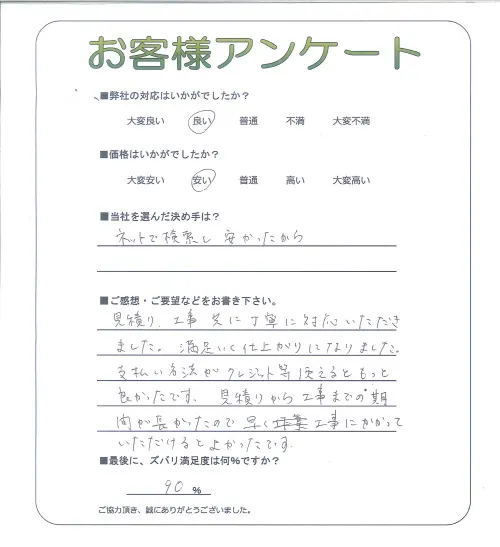 お客様アンケート
■弊社の対応はいかがでしたか？
大変良い 良い 普通 不満 大変不満
■価格はいかがでしたか？
大変安い 安い 普通 高い 大変高い
■当社を選んだ決め手は？
ネットで検索し 安かったから
■ご感想・ご要望などをお書き下さい。
見積り、工事 共に丁寧に対応いただき
ました。満足いく仕上がりになりました。
支払い方法がクレジット等使えるともっと
良かったです。見積りから工事までの期
間が長かったので早く工事にかかって
いただけるとよかったです。
■最後に、ズバリ満足度は何％ですか？
90 %
ご協力頂き、誠にありがとうございました。